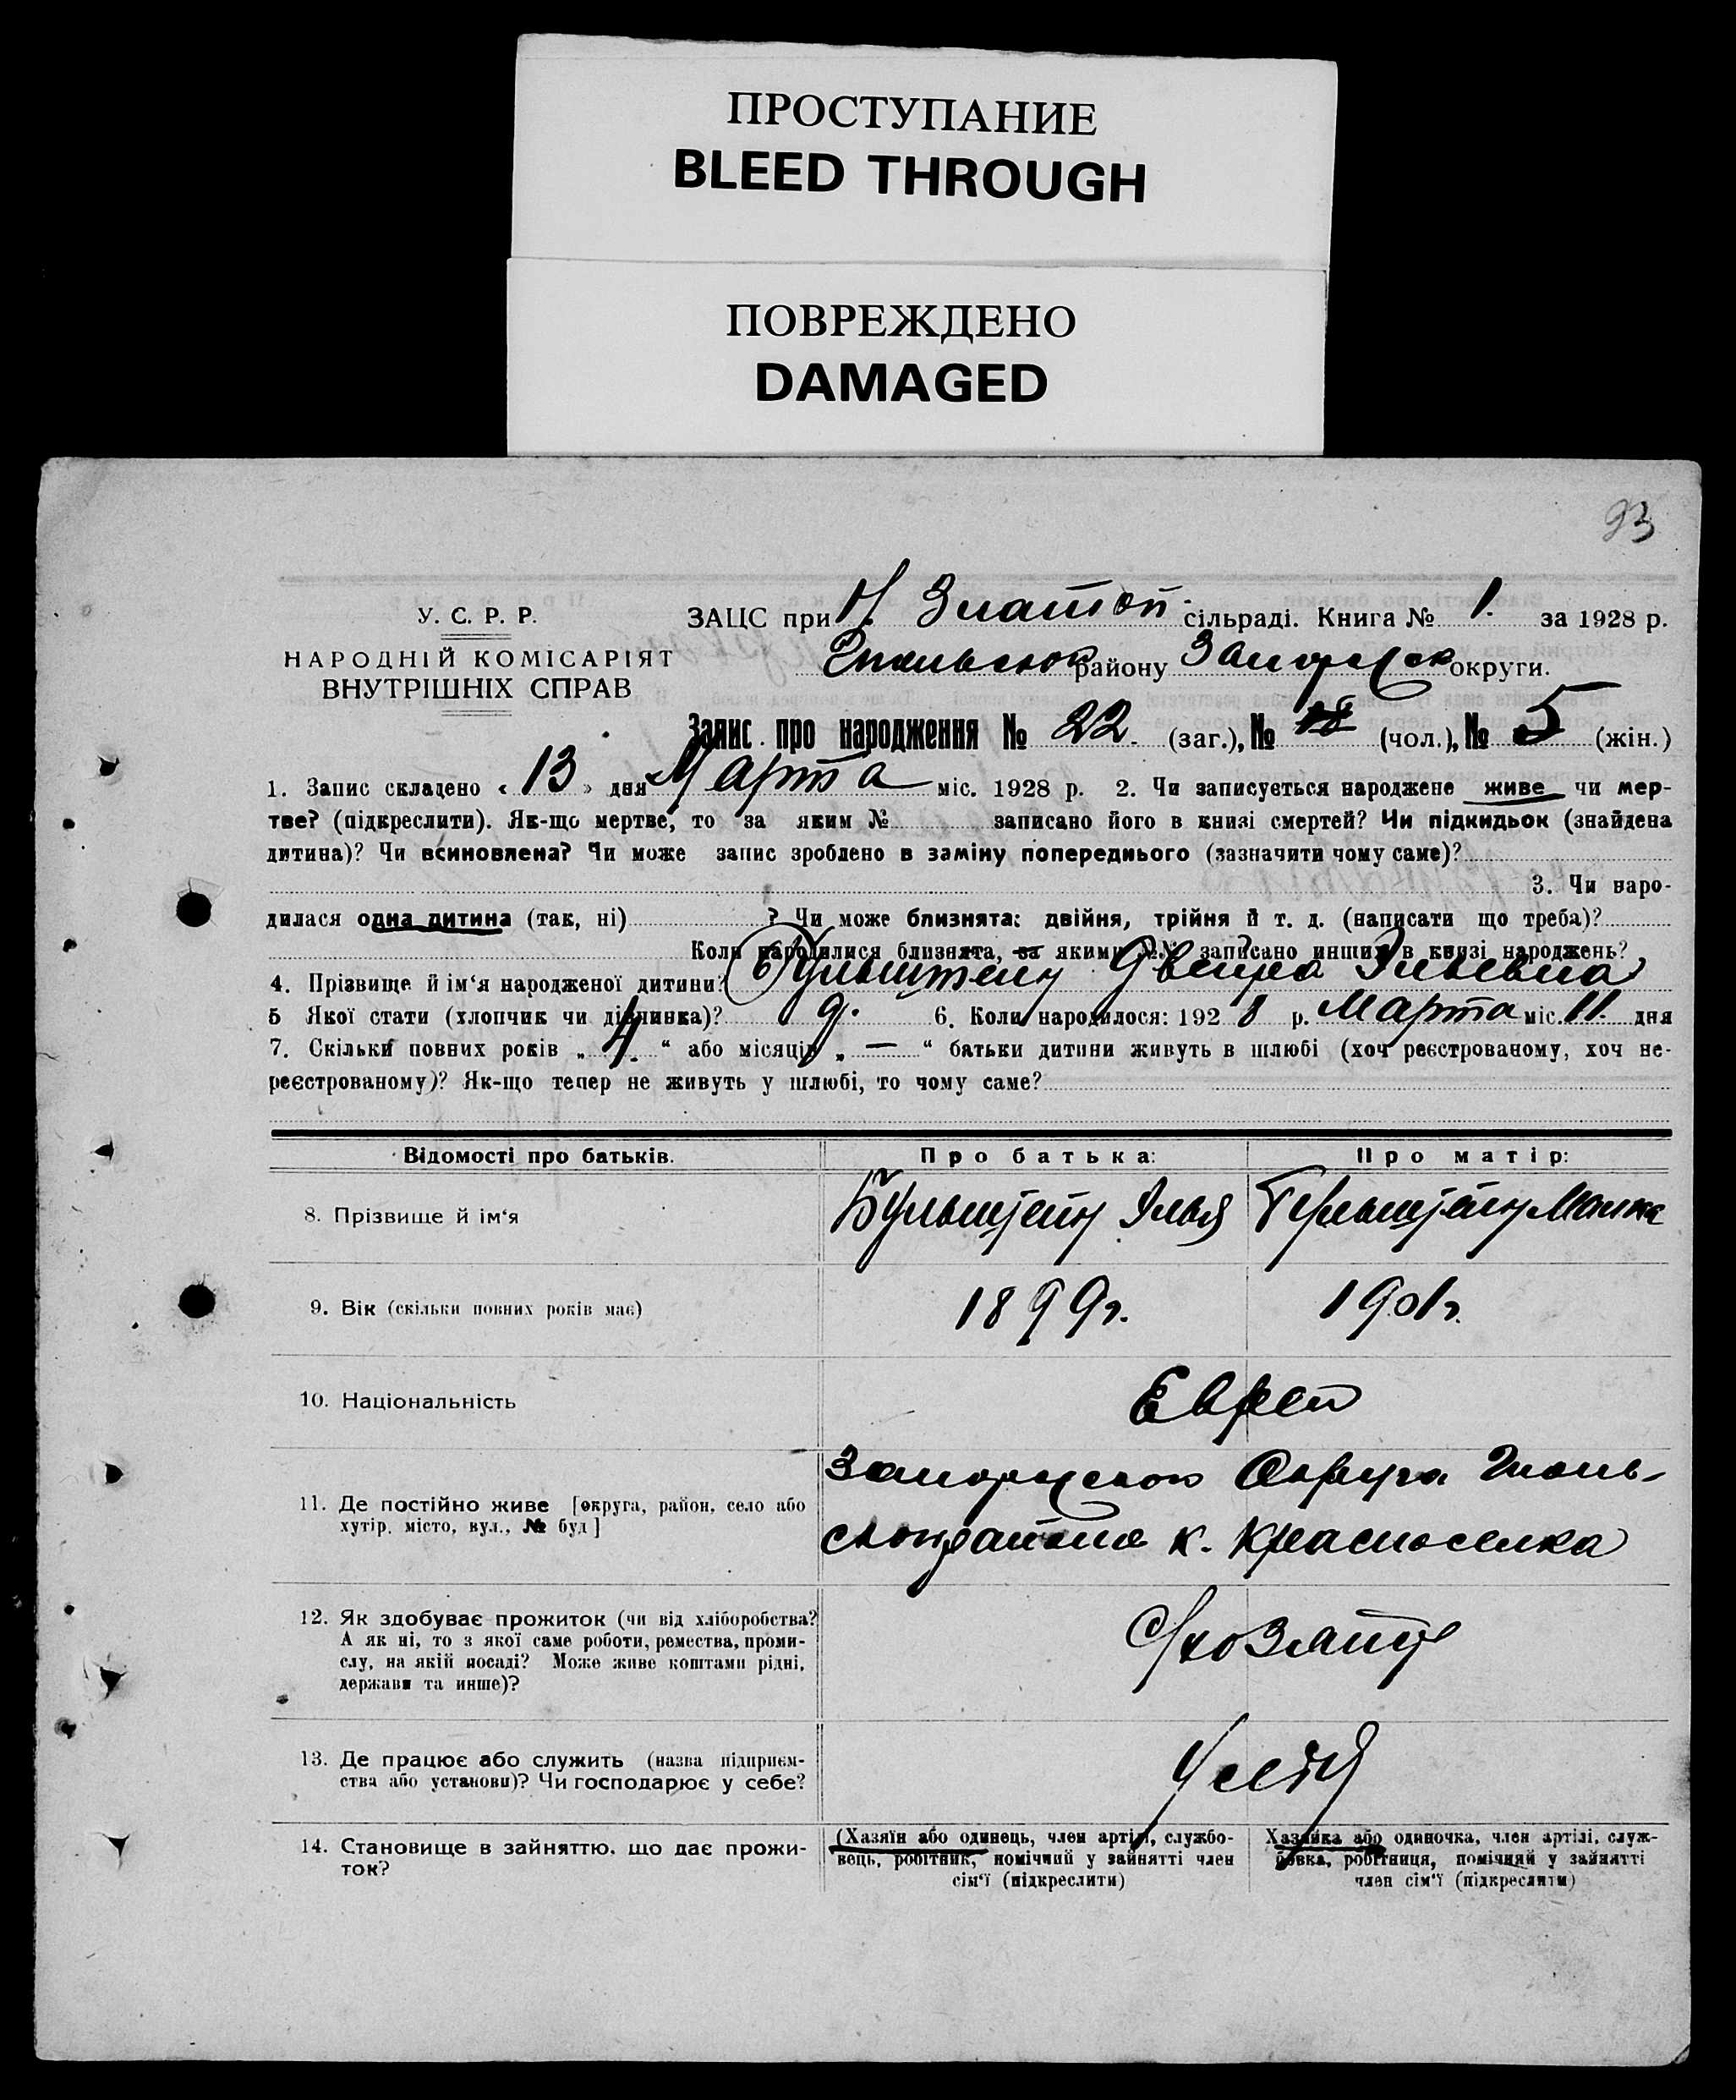 ПРОСТУПАНИЕ
BLEED THROUGH
ПОВРЕЖДЕНО
DAMAGED
93
У. С. Р. Р.
НАРОДНІЙ КОМІСАРІЯТ
ВНУТРІШНІХ СПРАВ
ЗАЦС при Н. Златоп. сільраді. Книга № 1. за 1928 р.
району Запорізск округи.
Запис про народження № 22. (заг.), № 18 (чол.), № 5 (жін.)
1. Запис складено « 13 » дня Марта міс. 1928 р. 2. Чи записується народжене живе чи мер-
тве? (підкреслити). Як-що мертве, то за яким № записано його в книзі смертей? Чи підкидьок (знайдена
дитина)? Чи всиновлена? Чи може запис зроблено в заміну попереднього (зазначити чому саме)?
3. Чи наро-
дилася одна дитина (так, ні) ? Чи може близнята: двійня, трійня й т. д. (написати що треба)?
Коли народилися близнята, за якими №№ записано инших в книзі народжень?
4. Прізвище й ім'я народженої дитини? Бульштейн Двейра Ильевна
5 Якої стати (хлопчик чи дівчинка)? д. 6. Коли народилося: 192 8 р. Марта міс. 11. дня
7. Скільки повних років „ 4. “ або місяців „ — “ батьки дитини живуть в шлюбі (хоч реєстрованому, хоч не-
реєстрованому)? Як-що тепер не живуть у шлюбі, то чому саме?
Відомості про батьків. Про батька: Про матір:
8. Прізвище й ім'я Бульштейн Илья Герьштейн Манка
9. Вік (скільки повних років має) 1899г. 1901г.
10. Національність Евреи
11. Де постійно живе [округа, район, село або
хутір, місто, вул., № буд]
Округа
к. Красноселка
12. Як здобуває прожиток (чи від хліборобства?
А як ні, то з якої саме роботи, ремества, проми-
слу, на якій посаді? Може живе коштами рідні,
держави та инше)?
13. Де працює або служить (назва підприєм-
ства або установи)? Чи господарює у себе?
У себя
14. Становище в зайняттю, що дає прожи-
ток?
(Хазяїн або одинець, член артілі, службо-
вець, робітник, помічний у зайнятті член
сім'ї (підкреслити)
Хазяйка або одиночка, член артілі, служ-
бовка, робітниця, помічний у зайнятті
член сім'ї (підкреслити)